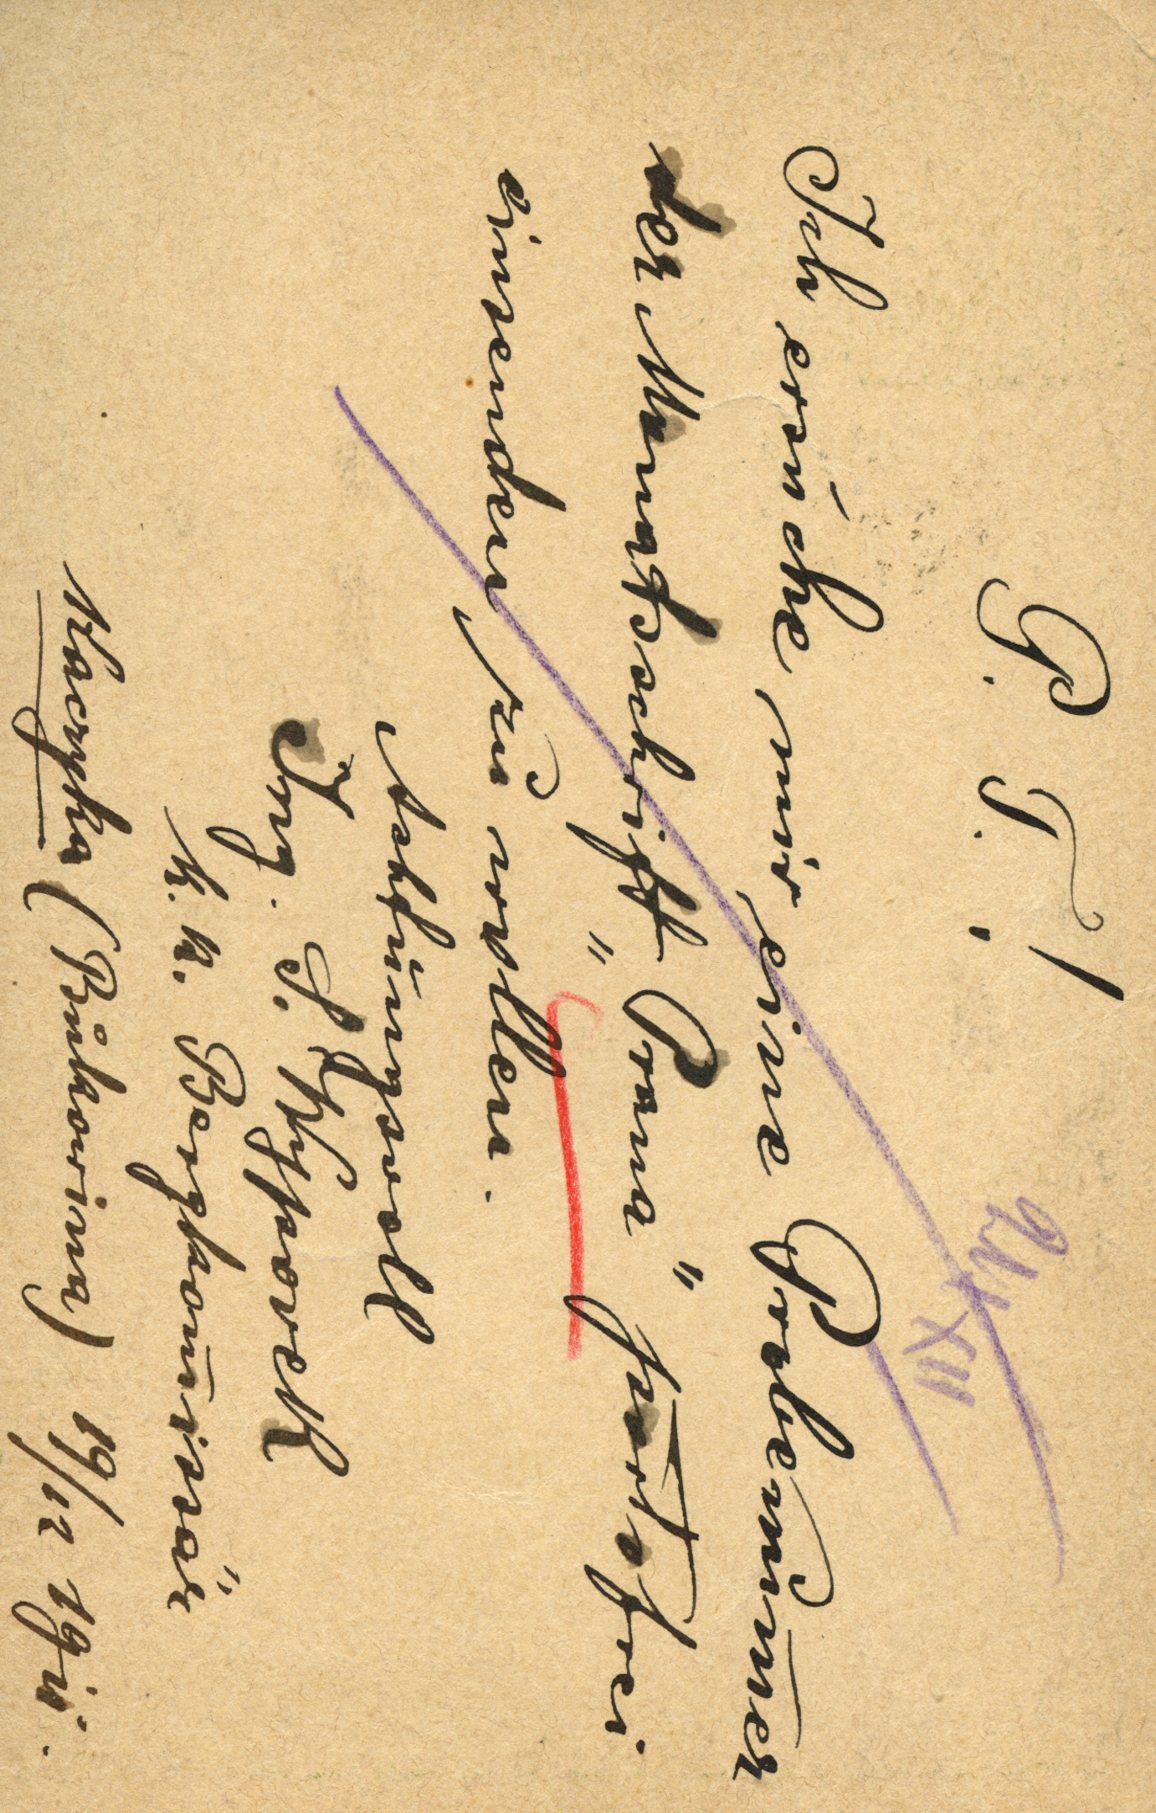 P. T.!
Ich ersuche mir eine Probenum̅er
der Monatsschrift „Roma" portofrei
einsenden zu wollen.
Achtungsvoll
Ing. S.
K. K. Bergkom̅issär
Kaczyka (Bukowina) 19/12 19
21/XII